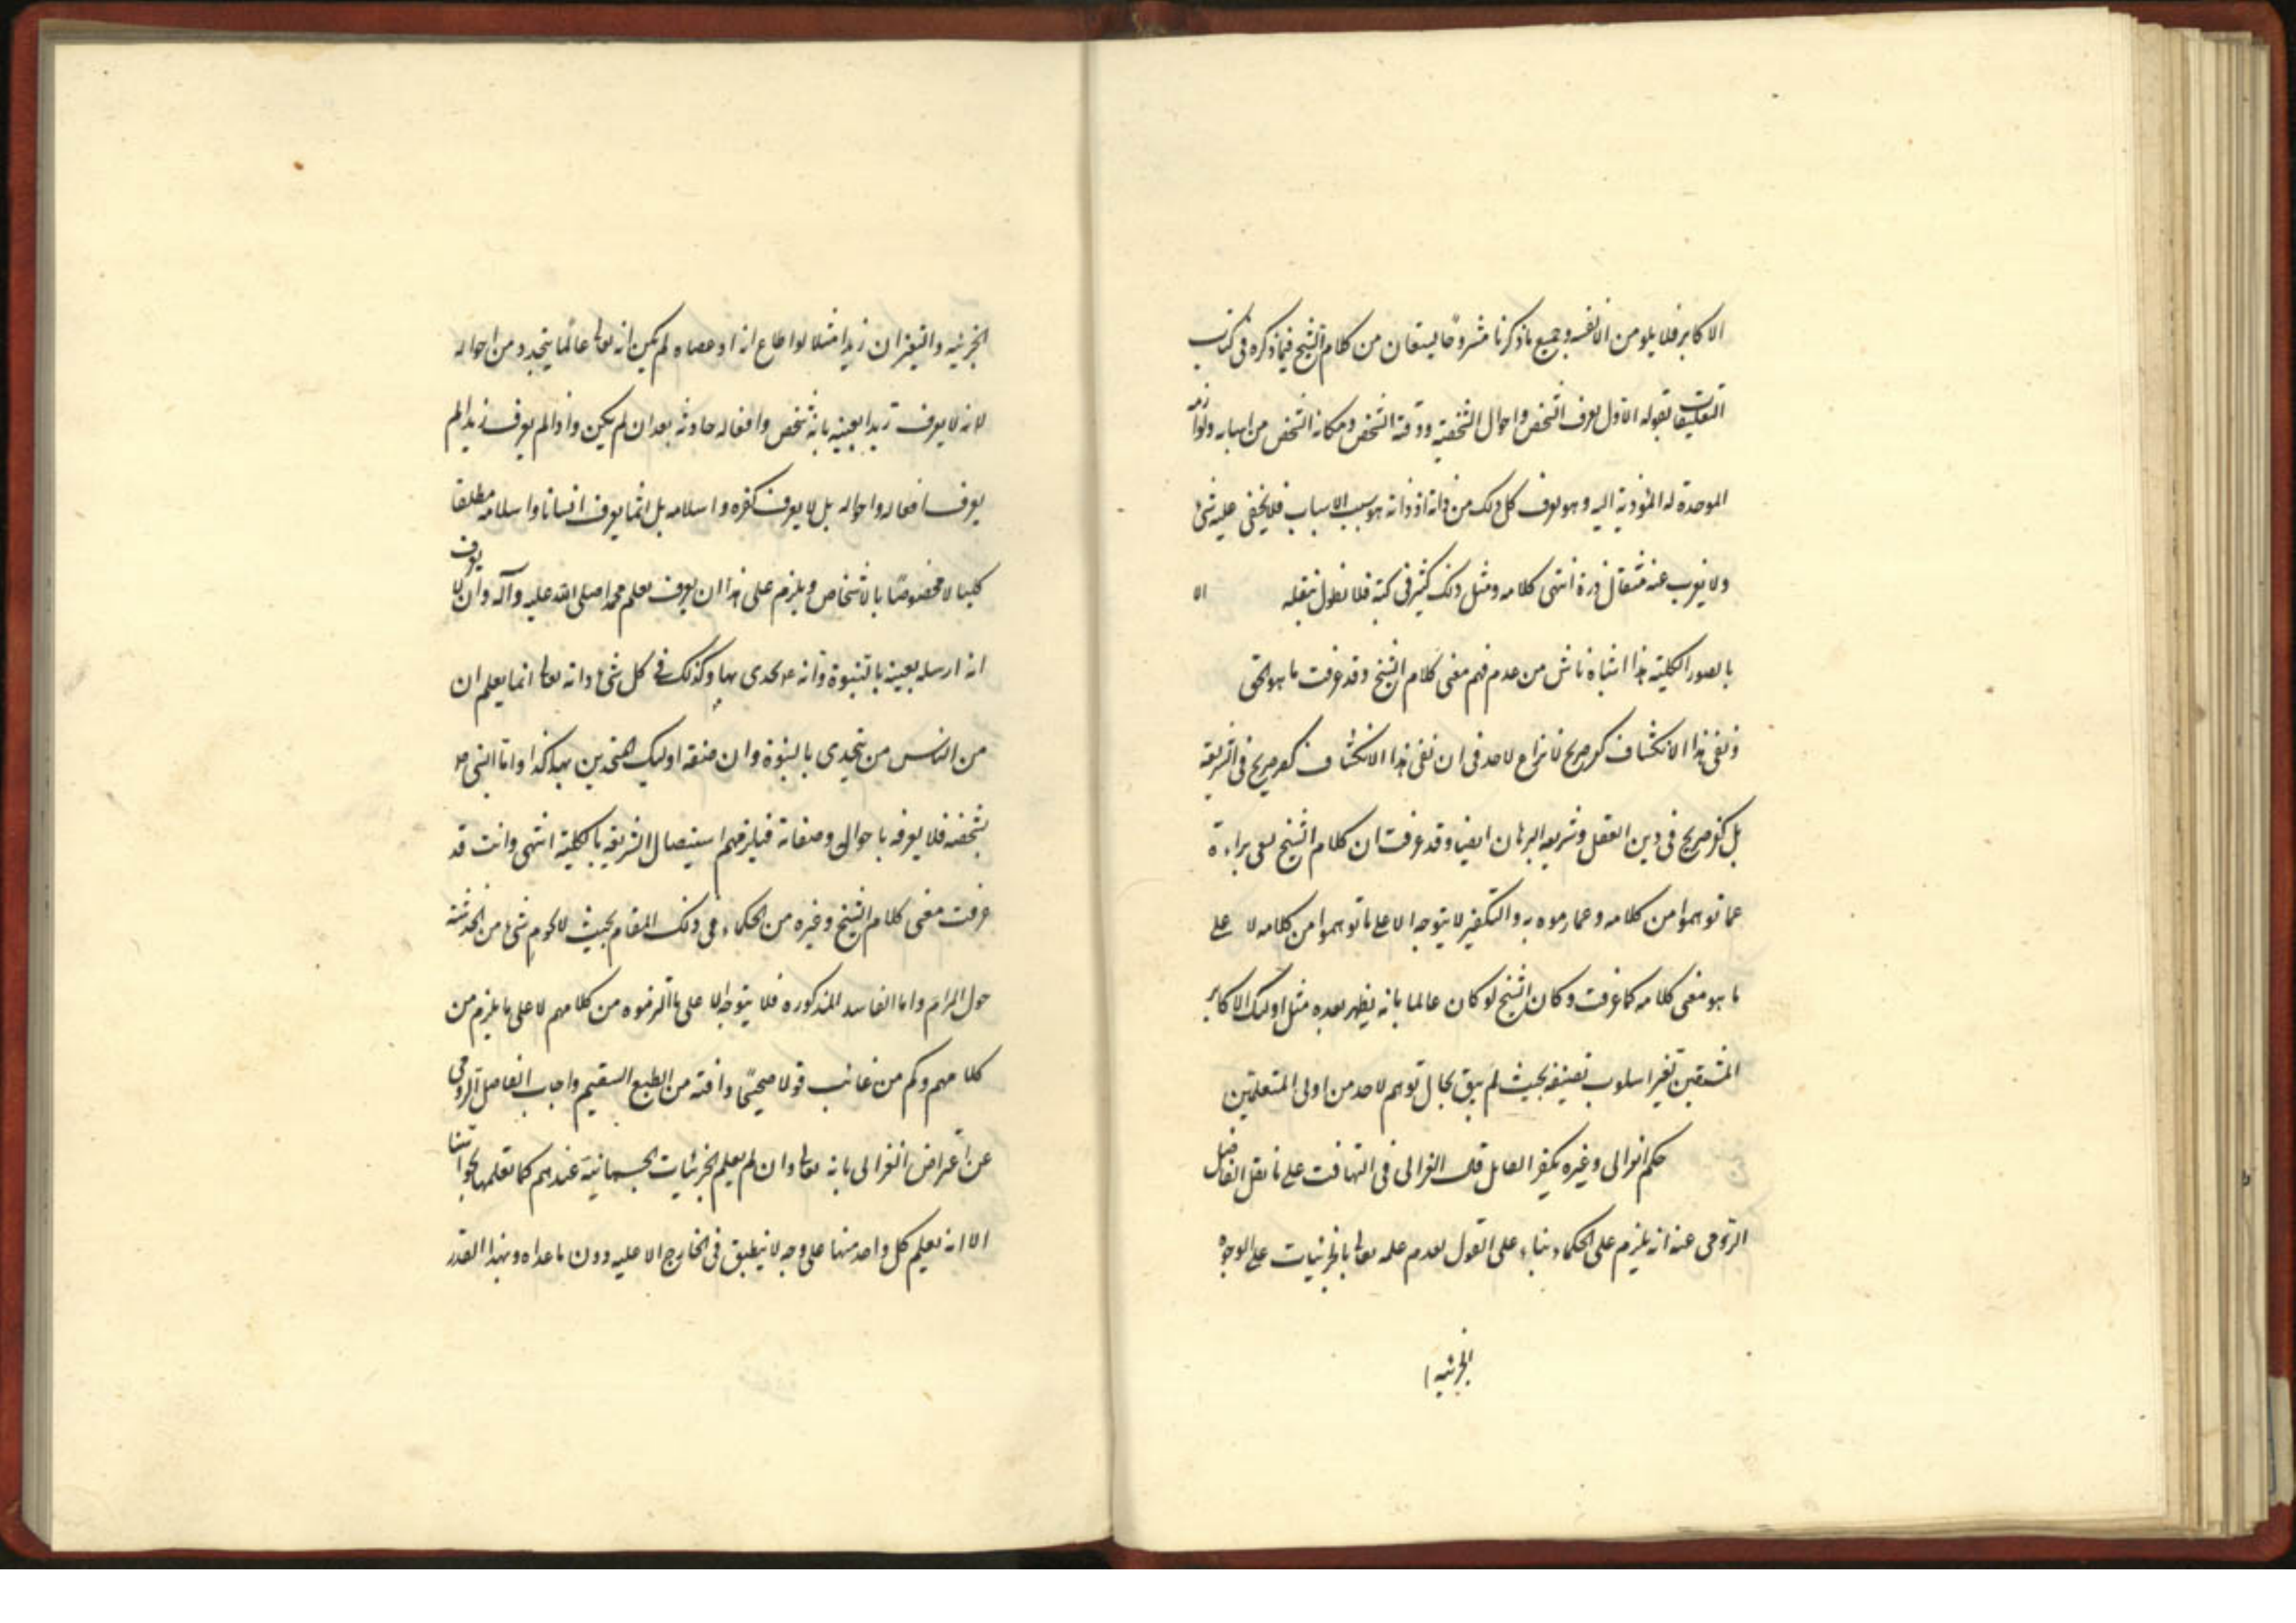 الاكابر فلا يلومن الا نفسه وجميع ما ذكرنا مشروحا يستفان من كلام الشيخ فيما ذكره في كتاب
التعليقات بقوله الاول يعرف الشخص واحوال الشخصية ووقته الشخص ومكانه الشخص من اسبابه ولوازمه
الموجدة له المؤدية اليه وهو يعرف كل ذلك من ذاته اذ ذاته هو سبب الاسباب فلا يخفى عليه شئ
ولا يعزب عنه مثقال ذرة انتهى كلامه ومثل ذلك كثير في كتبه فلا نطول بنقله الا
بالصور الكلية هذا اشباه ناش من عدم فهم معنى كلام الشيخ وقد عرفت ما هو الحق
ونفى هذا الانكشاف كفر صريح لا نزاع لاحد في ان نفى هذا الانكشاف كفر صريح في الشريعة
بل كفر صريح في دين العقل وشريعه البرهان ايضا وقد عرفت ان كلام الشيخ لفى براءة
عما توهموا من كلامه وعما رموه به والتكفير لا يتوجه الا على ما توهموا من كلامه لا على
ما هو معنى كلامه كما عرفت وكان الشيخ لو كان عالما بانه يظهر بعده مثل اولئك الاكابر
المتدقين تغير اسلوب تصنيفه بحيث لم يبق مجال توهم لاحد من اولى المتعلمين
حكم الغزالى وغيره بكفر القايل قال الغزالى في التهافت على ما نقل الفاضل
الرومى عنه انه يلزم على الحكماء بناء على القول بعدم علمه تعالى بالجزئيات على الوجوه
الجزئيه
الجزئيه والتغير ان زيدا مثلا لو اطاع الله او عصاه لم يكن الله تعالى عالما بتجدد من احواله
لانه لا يعرف زيدا بعينه بانه شخص وافعاله حادثه بعد ان لم يكن واذا لم يعرف زيدا لم
يعرف افعاله واحواله بل لا يعرف كفره واسلامه بل انما يعرف انسانا واسلامه مطلقا
كليا لا مخصوصا بالاشخاص ويلزم على هذا ان يعرف بعلم محمدا صلى الله عليه وآله وان لا يعرف
انه ارسله بعينه بالنبوة وانه تحدى بها وكذلك في كل شئ وانه تعالى انما يعلم ان
من الناس من يتحدى بالنبوة وان صفة اولئك المتحدين بها كذا واما النبى
بشخصه فلا يعرفه باحواله وصفاته فيلزمهم استيصال الشريعه بالكلية انتهى وانت قد
عرفت معنى كلام الشيخ وغيره من الحكماء في ذلك المقام بحيث لا يحوم شئ من الخدشة
حول المرام واما المفاسد المذكوره فلا يتوجه الا على ما الزموه من كلامهم لا على ما يلزم من
كلامهم وكم من عائب قولا صحيحا وآفته من الطبع السقيم واجاب الفاضل الرومى
عن اعتراض الغزالى بانه تعالى وان لم يعلم الجزئيات الجسمانية عندهم كما نعلمها بحواسنا
الا انه يعلم كل واحد منها على وجه لا ينطبق في الخارج الا عليه دون ما عداه وبهذا القدر